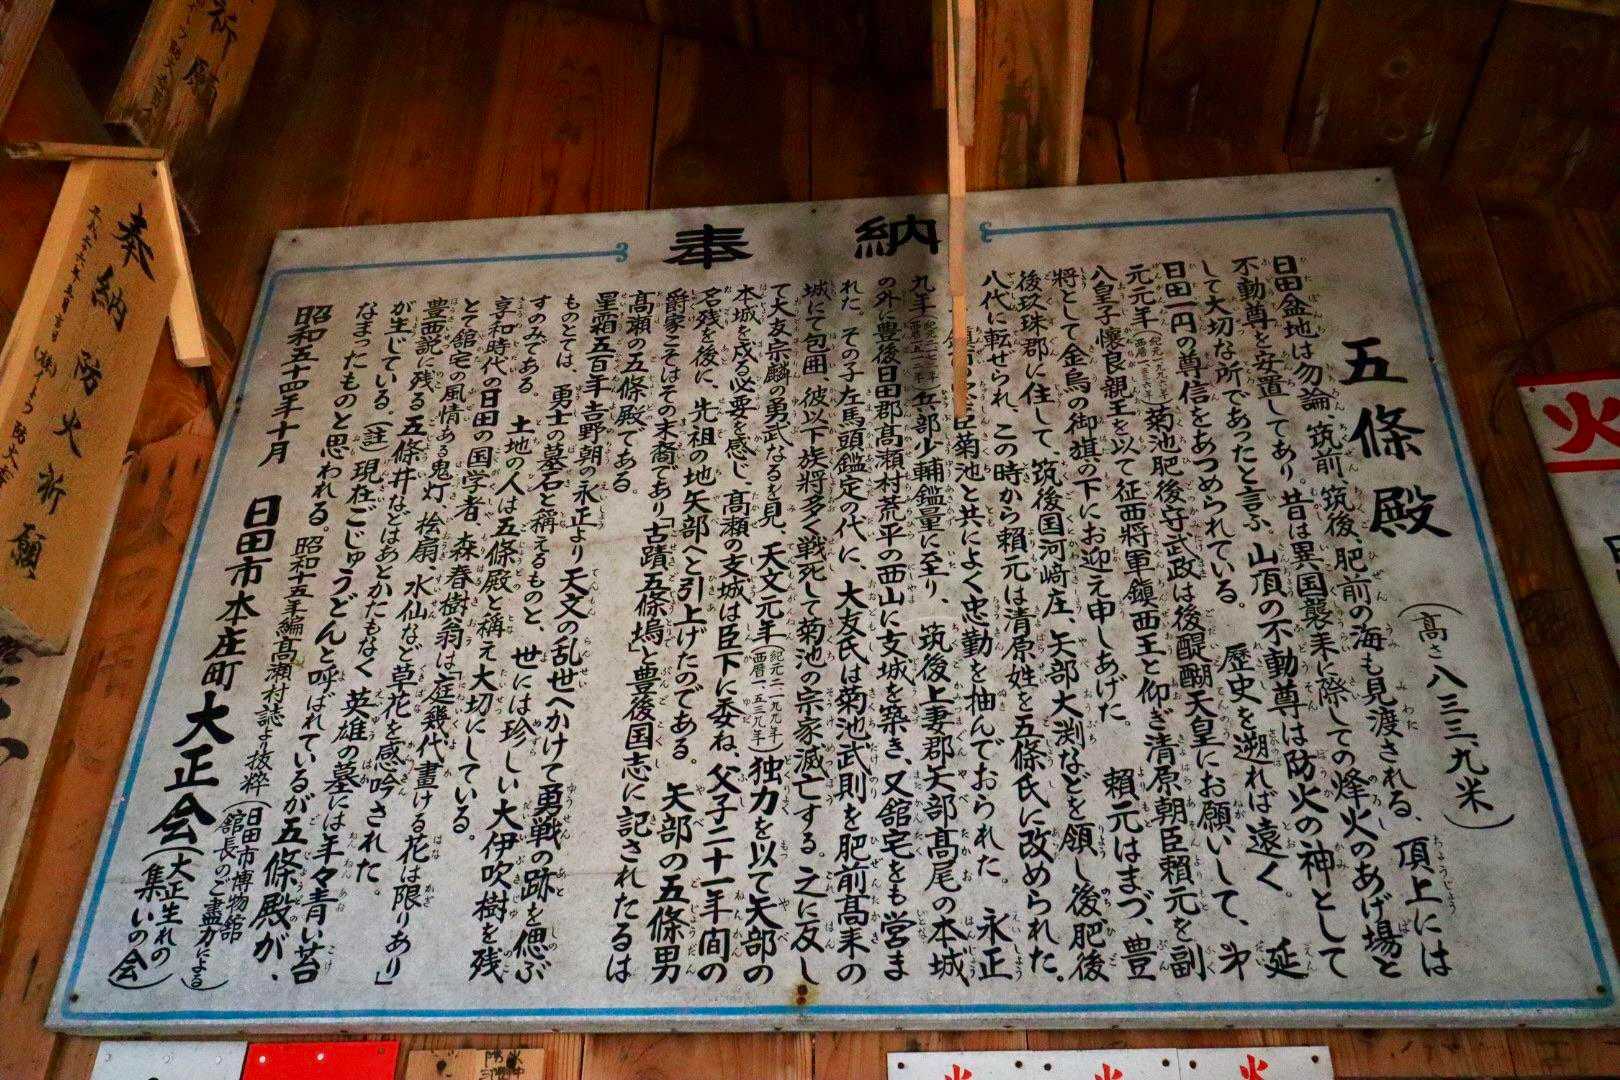 奉納
五條殿
(高さ八三三、九米)
日田盆地は勿論筑前、筑後、肥前の海も見渡される、頂上には
不動尊を安置してあり。昔は異国襲来に際しての烽火のあげ場と
して大切な所であったと言ふ。山頂の不動尊は防火の神として
日田一円の尊信をあつめられている。 歴史を遡れば遠く。延
元元年(紀元一九九六年 西暦一三三六年)菊池肥後守武政は後醍醐天皇にお願いして、㐧
八皇子懐良親王を以て征西将軍鎮西王と仰ぎ清原朝臣頼元を副
将として金烏の御旗の下にお迎え申しあげた。 頼元はまづ、豊
後玖珠郡に住して、筑後国河崎庄、矢部大渕などを領し後肥後
八代に転ぜられ、この時から頼元は清原姓を五條氏に改められた。
菊池と共によく忠勤を抽んでおられた。 永正
九年
兵部少輔鑑量に至り、筑後上妻郡矢部高尾の本城
の外に豊後日田郡高瀬村荒平の西山に支城を築き、又舘宅をも営ま
れた。その子左馬頭鑑定の代に、大友氏は菊池武則を肥前高来の
城にて包囲、彼以下族将多く戦死して菊池の宗家滅亡する。之に反し
て大友宗麟の勇武なるを見、天文元年(紀元二一九九年 西暦一五三九年)独力を以て矢部の
本城を戍る必要を感じ、高瀬の支城は臣下に委ね、父子二十一年間の
名残を後に、先祖の地矢部へと引上げたのである。 矢部の五條男
爵家こそはその末裔であり「古蹟五條塢」と豊後国志に記されたるは
高瀬の五條殿である。
星霜五百年吉野朝の永正より天文の乱世へかけて勇戦の跡を偲ぶ
ものとては、勇士の墓石と稱えるものと、世には珍しい大伊吹樹を残
すのみである。 土地の人は五條殿と稱え大切にしている。
享和時代の日田の国学者、森春樹翁は「庭幾代畫ける花は限りあり」
とて舘宅の風情ある鬼灯、桧扇、水仙など草花を感吟された。
豊西説に残る五條井などはあとかたもなく英雄の墓には年々青い苔
が生じている。(註)現在ごじゅうどんと呼ばれているが五條殿が、
なまったものと思われる。昭和十五年編高瀬村誌より抜粋(日田市博物館 舘長のご盡力による)
昭和五十四年十月 日田市本庄町大正会(大正生れの集いの会)
奉納 防火祈願
祈願
火
火
火
火